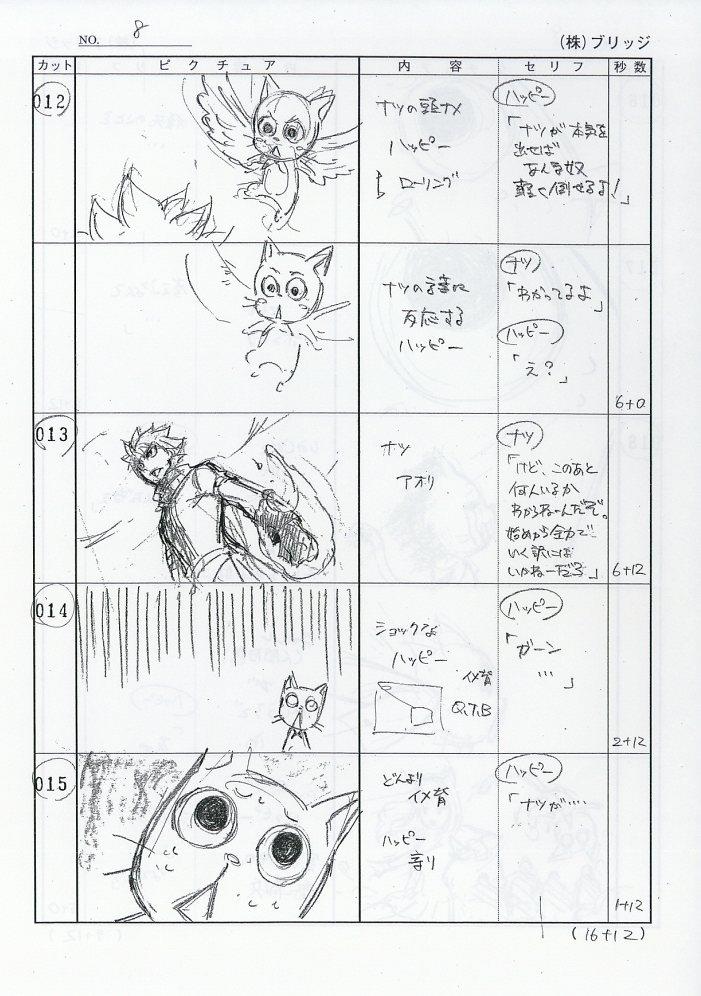 NO. 8
(株)ブリッジ
カット ピクチュア 内容 セリフ 秒数
012
ナツの頭ナメ
ハッピー
ローリング
ハッピー
「ナツが本気を
出せば
あんな奴
軽く倒せるよ!」
ナツの言葉に
反応する
ハッピー
ナツ
「わかってるよ」
ハッピー
「え?」
6+0
013
ナツ
アオリ
ナツ
「けど、このあと
何人いるか
わからねーんだぞ。
始めから全力で
いく訳には
いかねーだろ」
6+12
014
ショックな
ハッピー
イメ背
Q.T.B
ハッピー
「ガーン
…」
2+12
015
どんより
イメ背
ハッピー
寄り
ハッピー
「ナツが‥‥
1+12
(16+12)